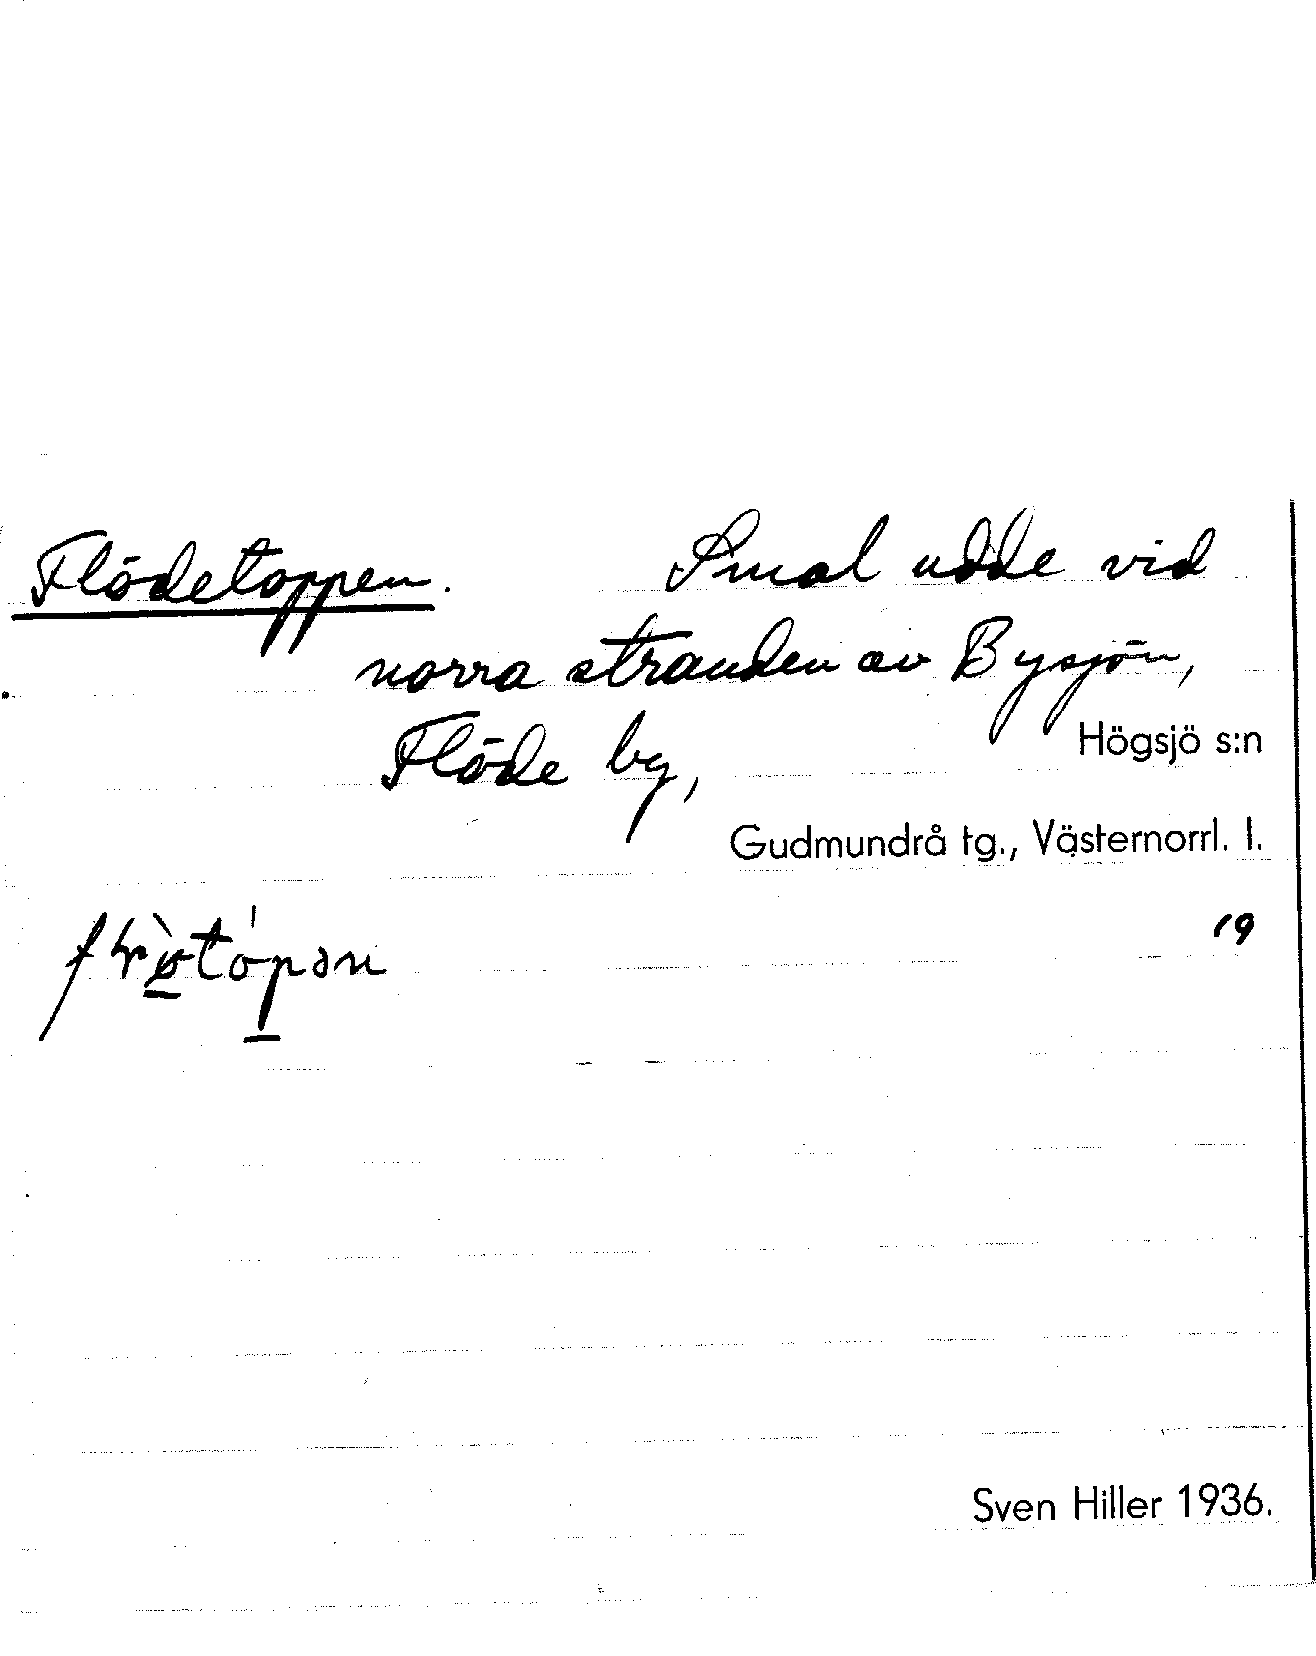 Flödetoppen. Smal udde vid
norra stranden av Bysjön,
Flöde by, Högsjö s:n
Gudmundrå tg., Västernorrl. l.
19
Sven Hiller 1936.